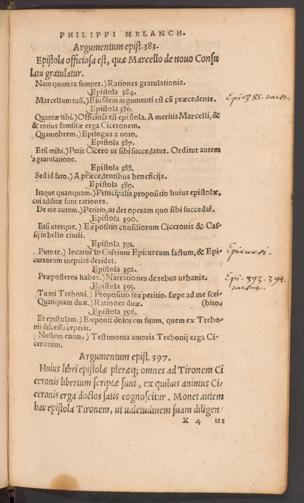 PHILIPPI MELANCH.
Argumentum epist. 383.
Epistola officiosa est, quæ Marcello de nouo Consu
latu gratulatur.
Nam quum te semper.) Rationes gratulationis.
Epistola 384.
Marcellum tuũ.) Eiusdem argumenti est cũ præcedente.
Epistola 386.
Quantæ tibi.) Officiosa est epistola. A meritis Marcelli, &
& totius familiæ erga Ciceronem.
Quamobrem.) Epilogus a uoto.
Epistola 387.
Etsi mihi.) Petit Cicero ut sibi succedatur. Orditur autem
a gratulatione.
Epistola 388.
Sed id fato.) A præcedentibus beneficijs.
Epistola 389.
Itaque quanquam.) Principalis propositio huius epistolæ,
cui additæ sunt rationes.
De me autem.) Petitio, ut det operam quo sibi succedat.
Epistola 390.
Etsi uterque.) Expositio consiliorum Ciceronis & Cas
sij in bello ciuili.
Epistola 391.
Puto te.) Iocatur in Cassium Epicureum factum, & Epi-
cureorum ineptias deridet.
Epicurei.
Epistola 392.
Præposteros habes.) Narrationes de rebus urbanis.
Epistola 395.
Tu mi Treboni.) Propositio seu petitio. sæpe ad me scri-
Quanquam duæ.) Rationes duæ. (bito
Epistola 396.
Et epistolam.) Exponit dolorem suum, quem ex Trebo-
nij discessu ceperit.
Nullum enim.) Testimonia amoris Trebonij erga Ci-
ceronem.
Argumentum epist. 397.
Huius libri epistolæ pleræq; omnes ad Tironem Ci
ceronis libertum scriptæ sunt, ex quibus animus Ci
ceronis erga doctos satis cognoscitur. Monet autem
hac epistola Tironem, ut ualetudinem suam diligen
X 4